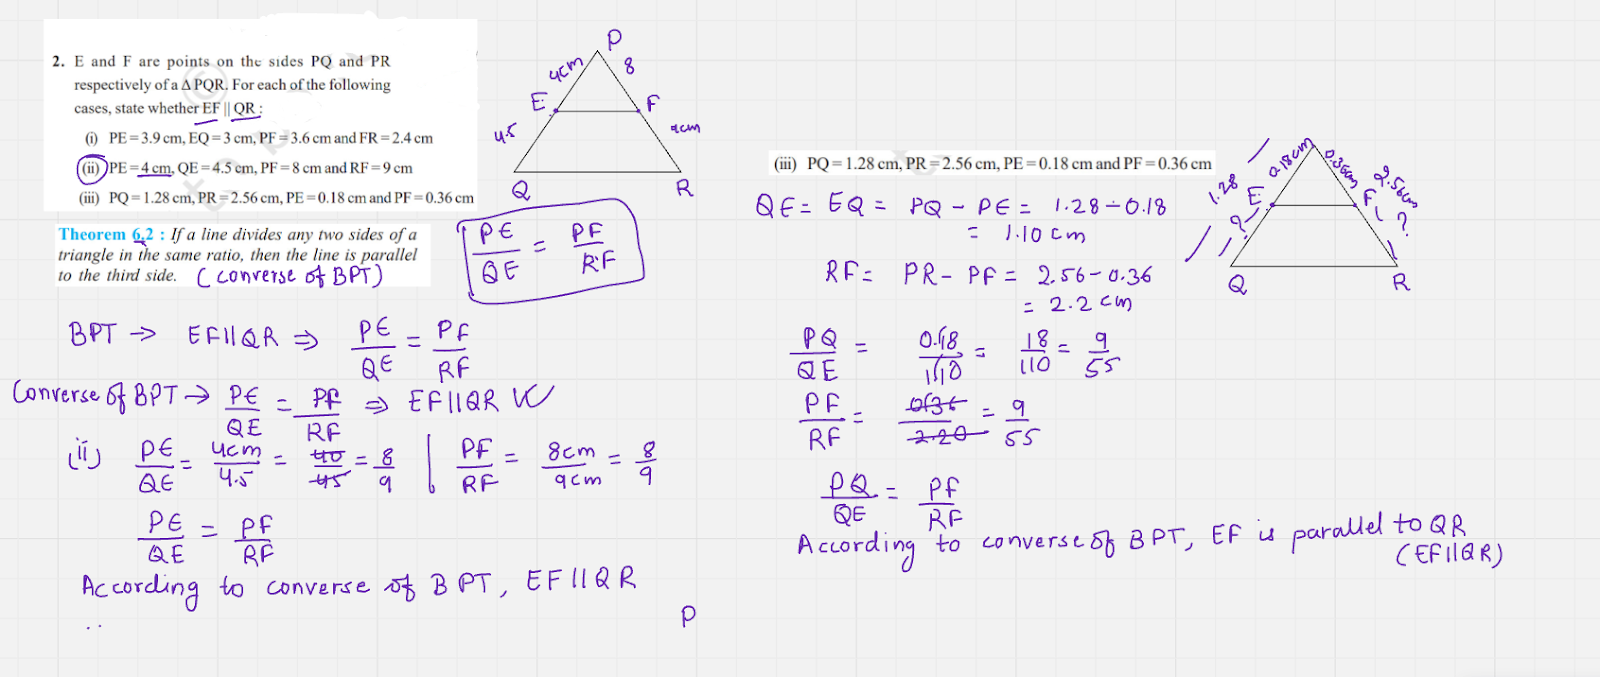 2. E and F are points on the sides PQ and PR
respectively of a Δ PQR. For each of the following
cases, state whether EF || QR :
(i) PE = 3.9 cm, EQ = 3 cm, PF = 3.6 cm and FR = 2.4 cm
(ii) PE = 4 cm, QE = 4.5 cm, PF = 8 cm and RF = 9 cm
(iii) PQ = 1.28 cm, PR = 2.56 cm, PE = 0.18 cm and PF = 0.36 cm
Theorem 6.2 : If a line divides any two sides of a
triangle in the same ratio, then the line is parallel
to the third side. (converse of BPT)
P
4cm 8
E F
4.5 9cm
Q R
PE/QE = PF/RF
BPT → EF||QR ⇒ PE/QE = PF/RF
Converse of BPT → PE/QE = PF/RF ⇒ EF||QR
(ii) PE/QE = 4cm/4.5 = 40/45 = 8/9 | PF/RF = 8cm/9cm = 8/9
PE/QE = PF/RF
According to converse of BPT, EF||QR
P
(iii) PQ = 1.28 cm, PR = 2.56 cm, PE = 0.18 cm and PF = 0.36 cm
QE = EQ = PQ - PE = 1.28 - 0.18
= 1.10 cm
RF = PR - PF = 2.56 - 0.36
= 2.2 cm
PQ/QE = 0.18/1.10 = 18/110 = 9/55
PF/RF = 0.36/2.20 = 9/55
PQ/QE = PF/RF
According to converse of BPT, EF is parallel to QR
(EF||QR)
1.28 0.18cm 0.36cm 2.56cm
E F
? ?
Q R